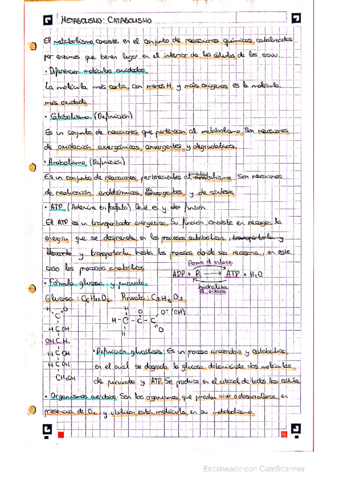 METABOLISMO: CATABOLISMO
El metabolismo consiste en el conjunto de reacciones químicas catalizadas
por enzimas que tienen lugar en el interior de las células de los seres
• Diferenciar moléculas oxidadas.
La molécula más corta, con menos H, y más oxígenos es la molécula
más oxidada
• Catabolismo (Definición)
Es un conjunto de reacciones que pertenecen al metabolismo. Son reacciones
de oxidación, exergónicas, convergentes y degradativas.
• Anabolismo (Definición)
Es un conjunto de reacciones pertenecientes al Son reacciones
de reducción, endotérmicas, divergentes y de síntesis
• ATP (Adenina trifosfato) Que es y der función
El ATP es un transportador energético. Su función consiste en recoger la
energía que se desprende en los procesos catabólicos, transportarla y
y transportarla hasta los procesos donde sea necesaria, en este
caso los procesos anabólicos
Forma el enlace
ADP + Pi ⇄ ATP + H2O
hidroliza
el enlace
• Fórmula glucosa y piruvato.
Glucosa: C6H12O6 Piruvato: C3H4O3
• Definición glucólisis: Es un proceso anaerobio y catabólico
en el cual se degrada la glucosa obteniendo dos moléculas
de piruvato y ATP. Se produce en el citosol de todas las células
• Organismos aerobios: Son los organismos que pueden vivir o desarrollarse en
presencia de O2, y utilizan esta molécula en su metabolismo.
Escaneado con CamScanner